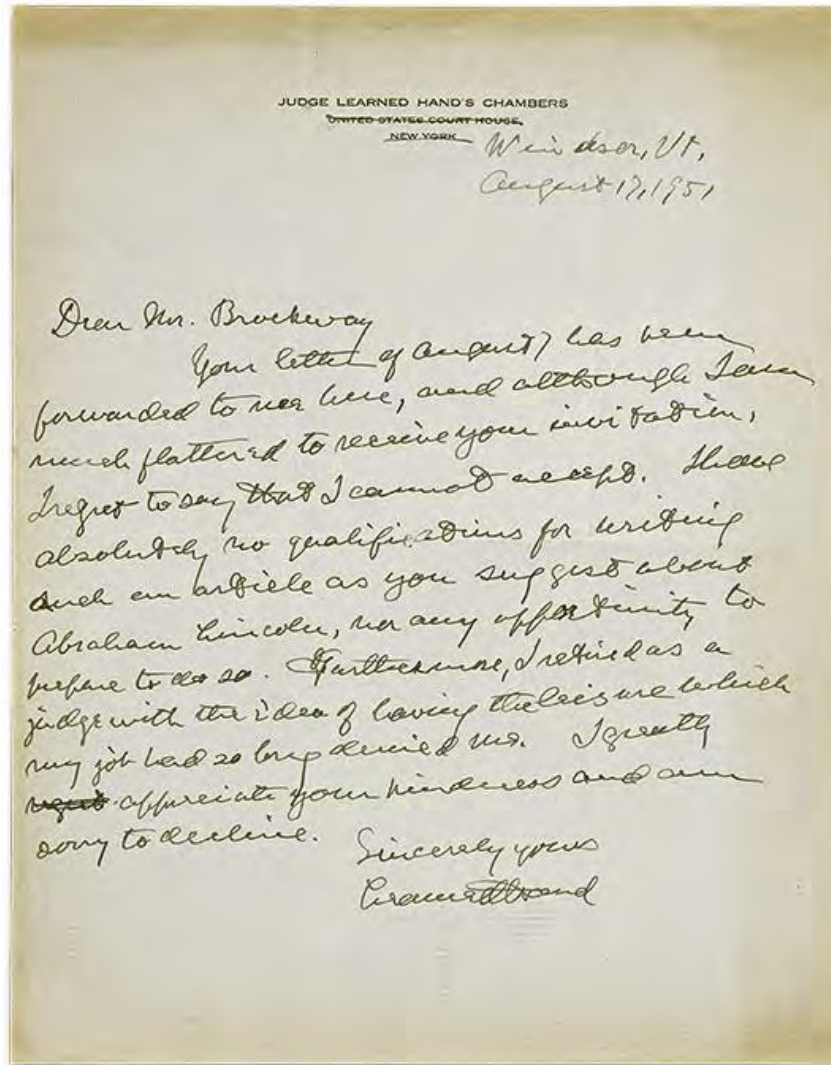 JUDGE LEARNED HAND'S CHAMBERS
UNITED STATES COURT HOUSE,
NEW YORK
Windsor, Vt,
August 17, 1951
Dear Mr. Brockway
Your letter of August 7 has been
forwarded to me here, and although I am
much flattered to receive your invitation,
I regret to say that I cannot accept. I have
absolutely no qualifications for writing
such an article as you suggest about
Abraham Lincoln, nor any opportunity to
prepare to do so. Furthermore, I retired as a
judge with the idea of having the leisure which
my job had so long denied me. I greatly
regret appreciate your kindness and am
sorry to decline.
Sincerely yours
Learned Hand